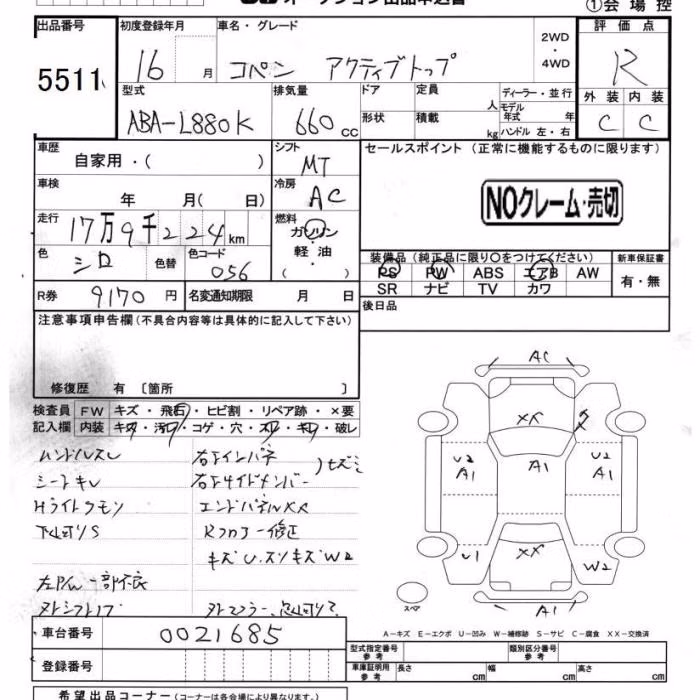 オークション出品申込書
①会場控
出品番号 初度登録年月 車名・グレード 2WD・4WD 評価点
5511 16 月 コペン アクティブトップ R
型式 排気量 ドア 定員 人 ディーラー・並行 外装 内装
ABA-L880K 660 cc 形状 積載 kg モデル年式 年 ハンドル 左・右 C C
車歴 自家用・( ) シフト MT セールスポイント (正常に機能するものに限ります)
車検 年 月( 日) 冷房 AC
NOクレーム・売切
走行 17万9千224km 燃料 ガソリン
軽油
( )
色 シロ 色替 色コード 056
装備品(純正品に限り○をつけてください) 新車保証書
PS PW ABS エアB AW 有・無
SR ナビ TV カワ
R券 9170円 名変通知期限 月 日 後日品
注意事項申告欄(不具合内容等は具体的に記入して下さい)
修復歴 有 [箇所 ]
検査員 FW キズ・飛石・ヒビ割・リペア跡・×要
記入欄 内装 キズ・汚れ・コゲ・穴・スレ・キレ・破レ
ハンドルスレ 右Fインパネ
シートキレ 右Fサイドメンバー
Hライトクモリ エンドパネルXX
下廻りS Rフロアー修正
キズU.スリキズW2
AC
XX
U2 A1 A1 U2 A1
U1 XX W2
A1
スペア
A-キズ E-エクボ U-凹み W-補修跡 S-サビ C-腐食 XX-交換済
車台番号 0021685
型式指定番号 参考 類別区分番号 参考
登録番号
車庫証明用 参考 長さ cm 幅 cm 高さ cm
希望出品コーナー(コーナーは各会場により異なります。)